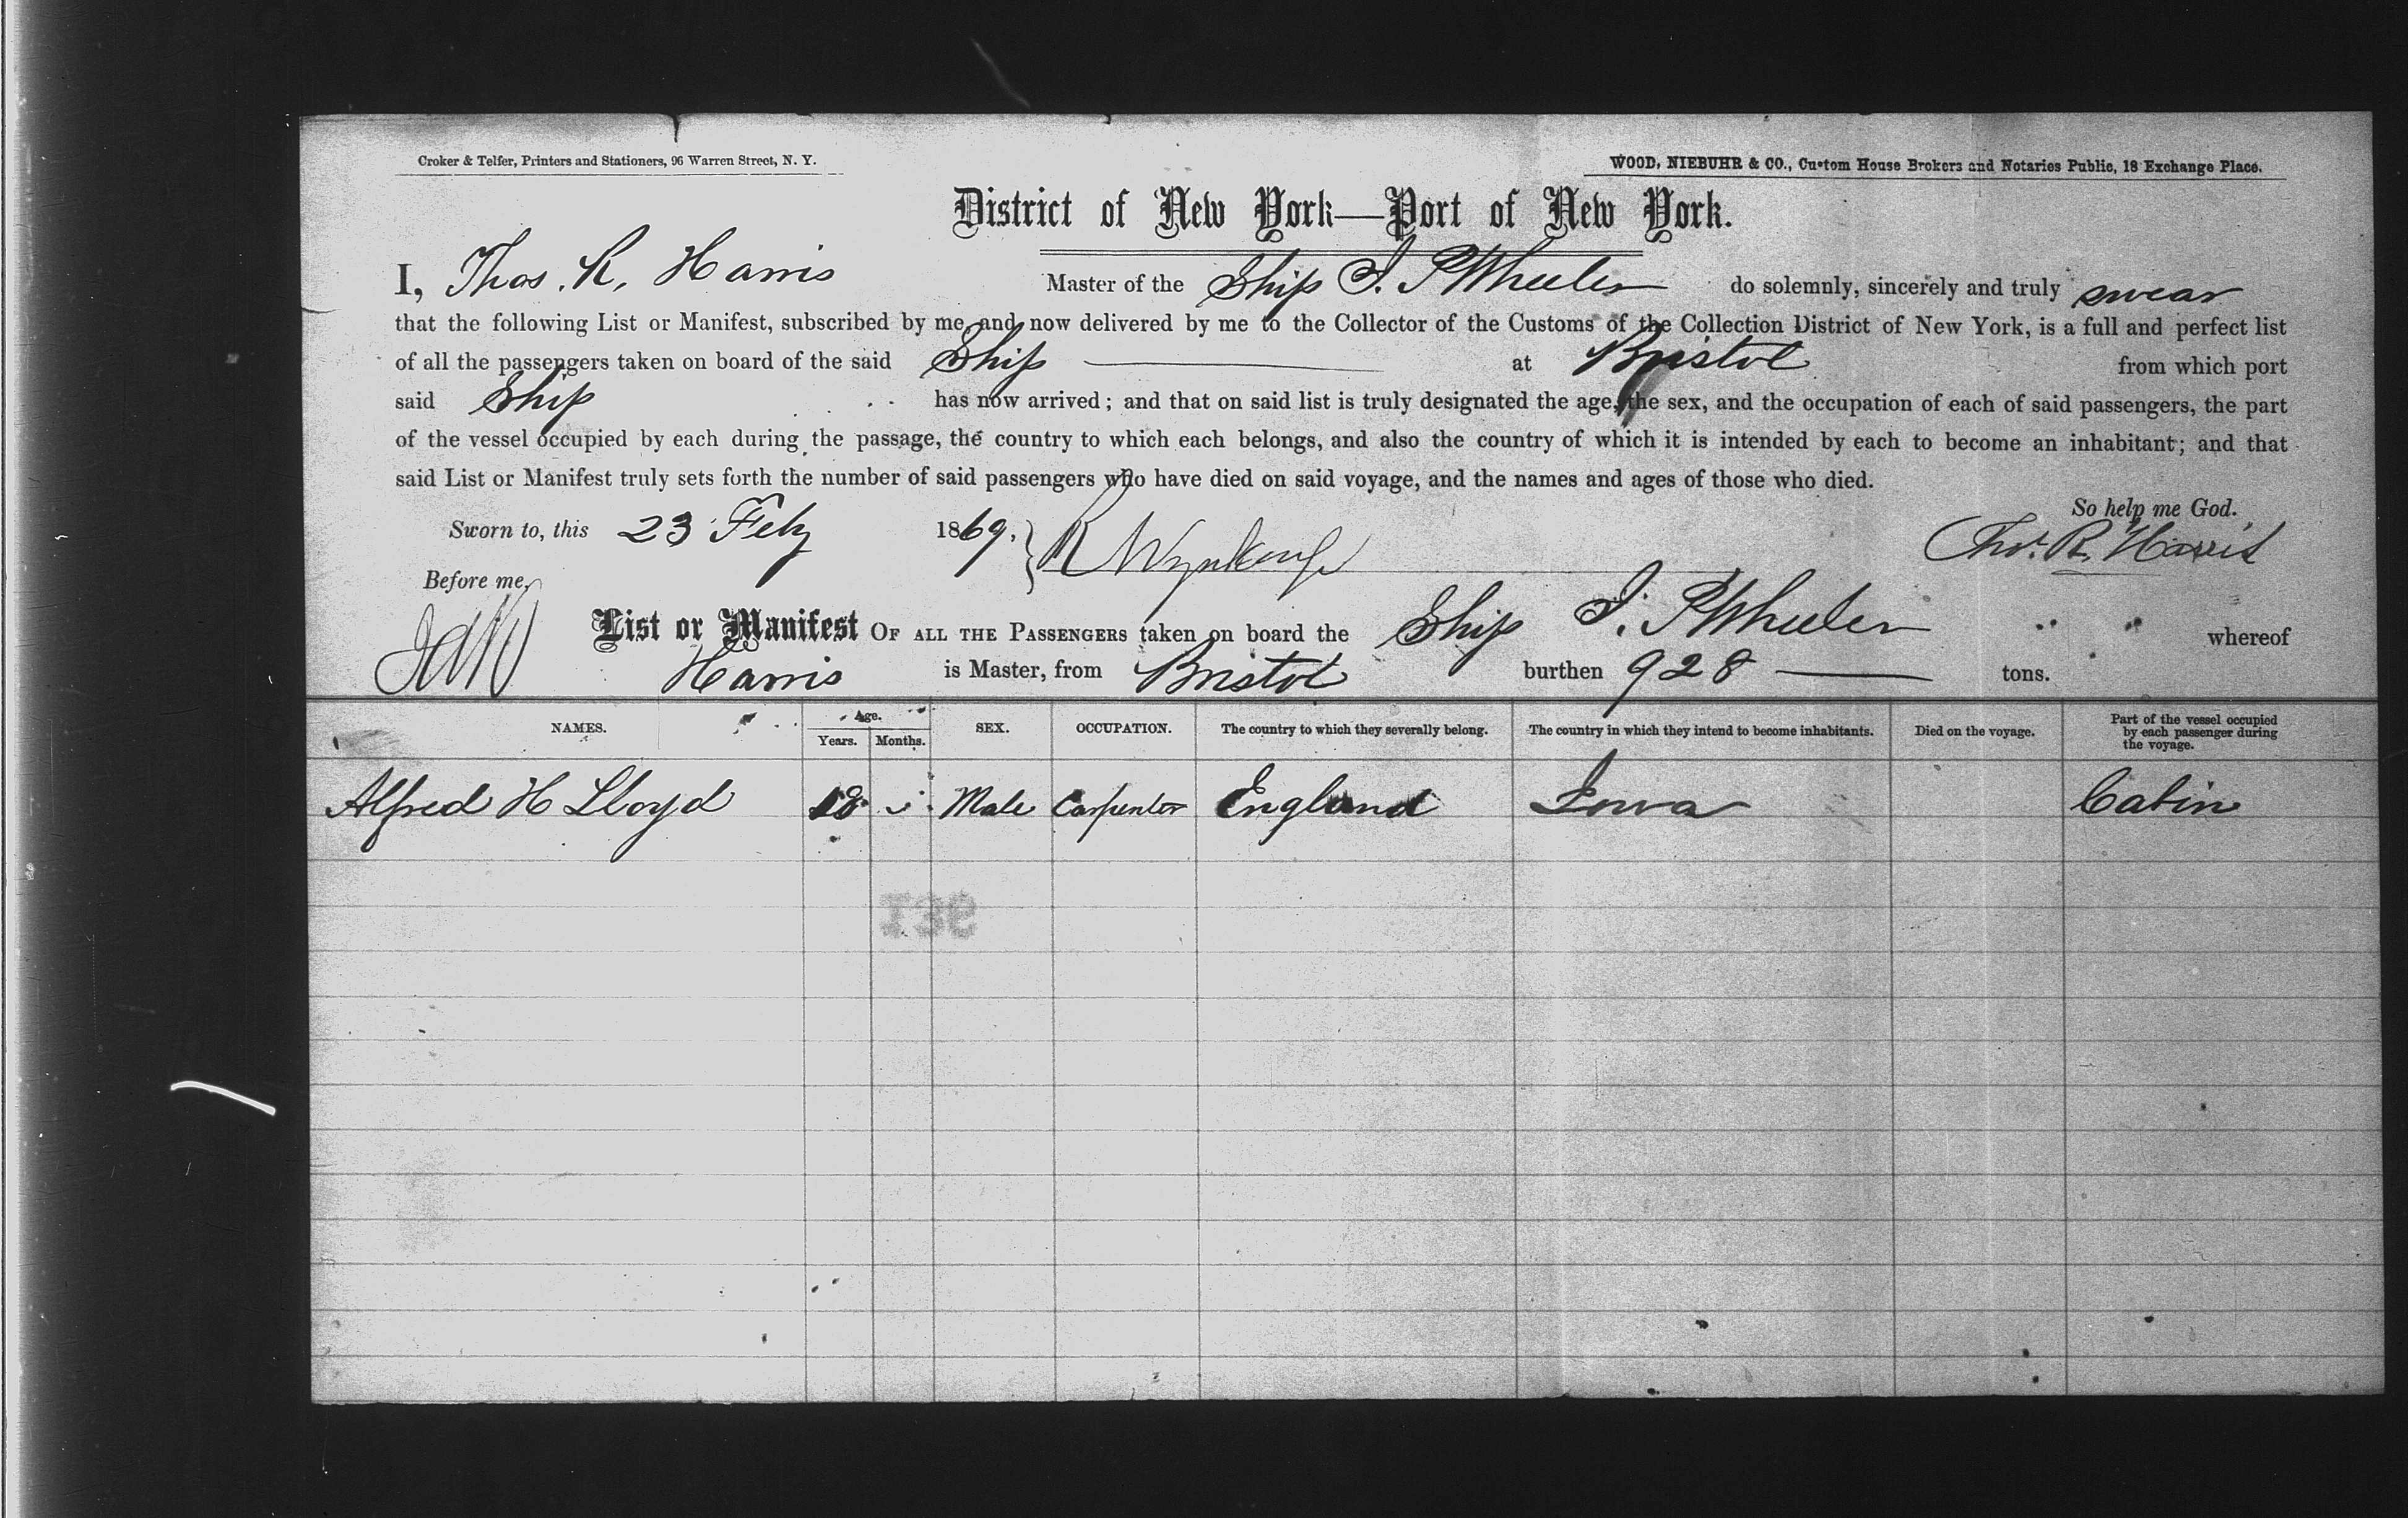 Croker & Telfer, Printers and Stationers, 96 Warren Street, N. Y.
WOOD, NIEBUHR & CO., Custom House Brokers and Notaries Public, 18 Exchange Place.
District of New York—Port of New York.
I, Thos. R. Harris Master of the Ship I. P Wheeler do solemnly, sincerely and truly swear
that the following List or Manifest, subscribed by me, and now delivered by me to the Collector of the Customs of the Collection District of New York, is a full and perfect list
of all the passengers taken on board of the said Ship at Bristol from which port
said Ship has now arrived; and that on said list is truly designated the age, the sex, and the occupation of each of said passengers, the part
of the vessel occupied by each during the passage, the country to which each belongs, and also the country of which it is intended by each to become an inhabitant; and that
said List or Manifest truly sets forth the number of said passengers who have died on said voyage, and the names and ages of those who died.
So help me God.
Sworn to, this 23 Feby 1869. Thos. R. Harris
Before me,
List or Manifest OF ALL THE PASSENGERS taken on board the Ship I. P Wheeler whereof
Harris is Master, from Bristol burthen 928 tons.
NAMES. Age. Years. Months. SEX. OCCUPATION. The country to which they severally belong. The country in which they intend to become inhabitants. Died on the voyage. Part of the vessel occupied by each passenger during the voyage.
Alfred H Lloyd 18 Male Carpenter England Iowa Cabin
136